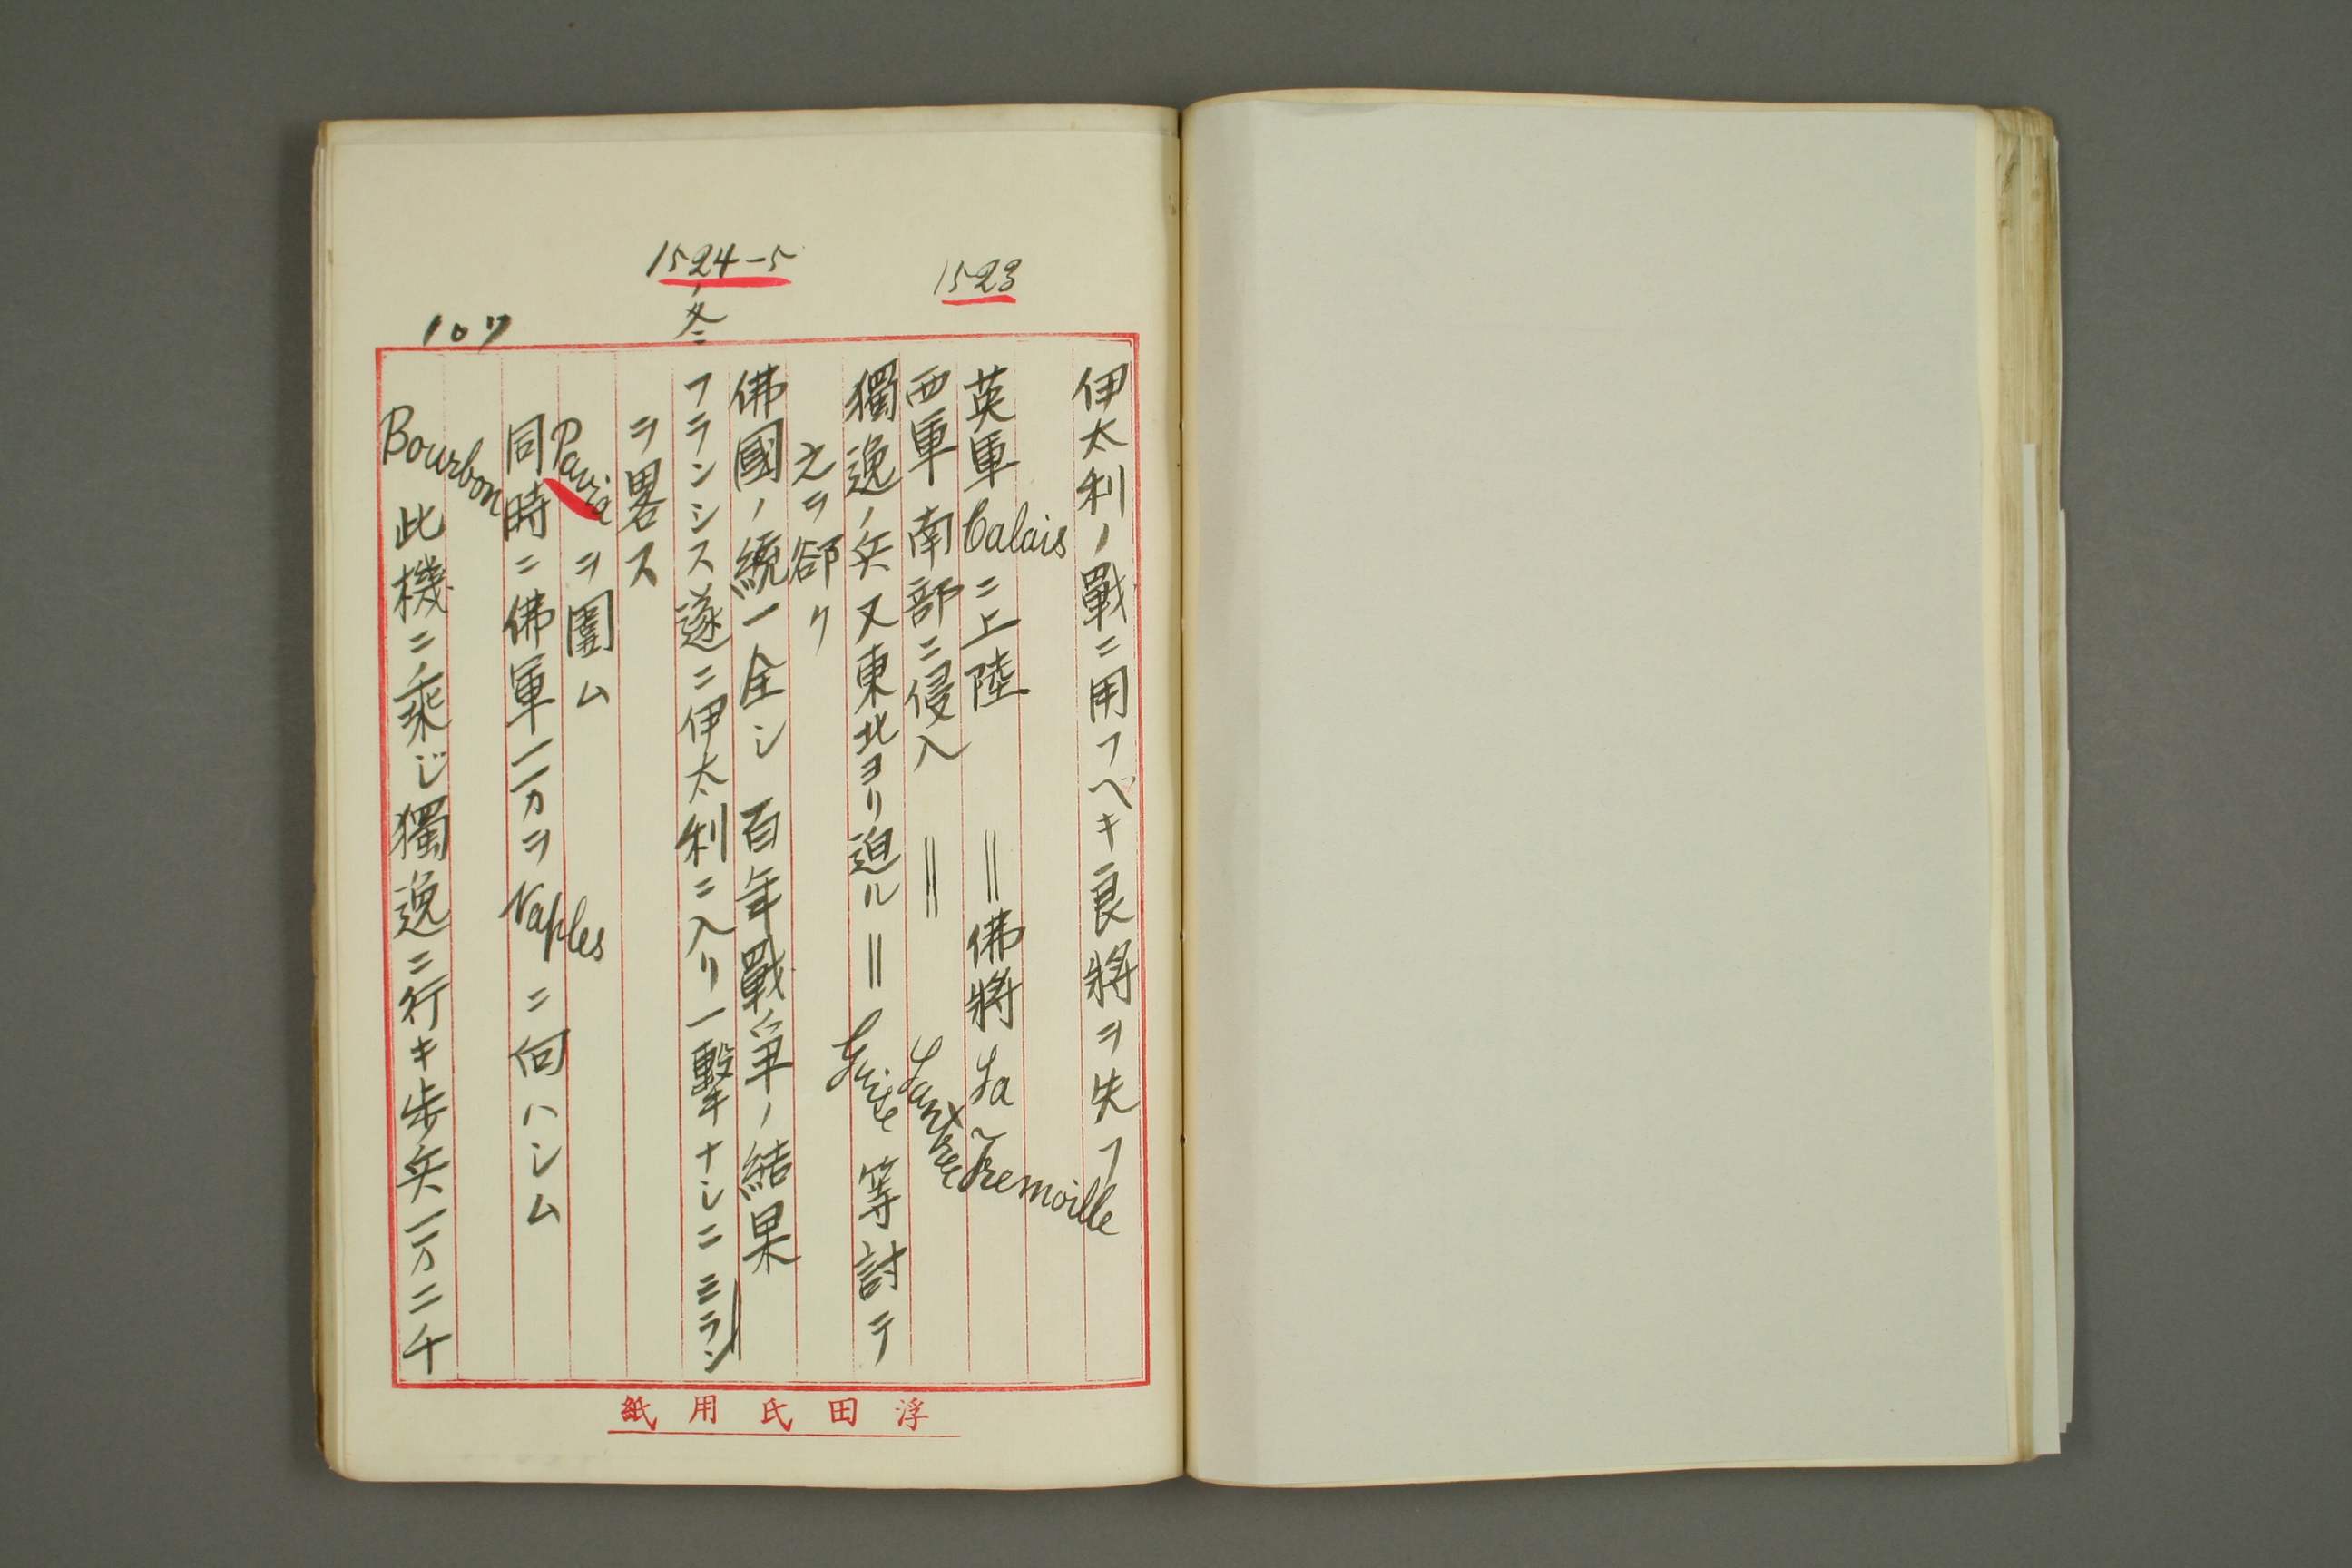 伊太利ノ戰ニ用フベキ良將ヲ失フ
1523
英軍 Calais ニ上陸 ＝佛將 La Tremoille
西軍 南部ニ侵入 ＝ Lautrec
獨逸ノ兵又東北ヨリ迫ル＝ Guise 等討テ
之ヲ郤ク
佛國ノ統一全シ 百年戰爭ノ結果
1524-5
ノ冬ニ
フランシス遂ニ伊太利ニ入リ一擊ナシニミラン
ヲ畧ス
Pavia ヲ圍ム
同時ニ佛軍一万ヲ Naples ニ向ハシム
107
Bourbon 此機ニ乘ジ獨逸ニ行キ步兵一万二千
浮田氏用紙